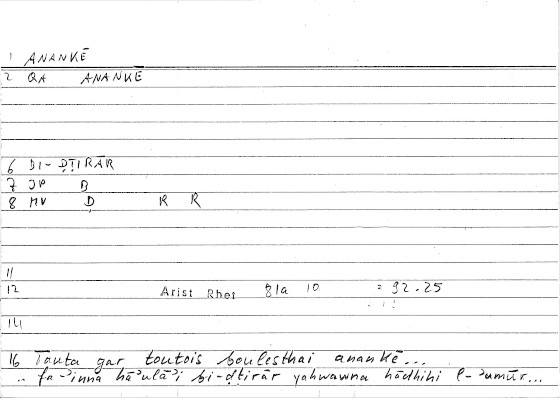 1 ANANKĒ
2 QA ANANKĒ
6 BI-ḌṬIRĀR
7 JP B
8 MV Ḍ R R
11
12 Arist Rhet 81a 10 = 92.25
14
16 Tauta gar toutois boulesthai anankē...
.. fa-ʾinna hāʾulāʾi bi-ḍṭirār yahwawna hādhihi l-ʾumūr...